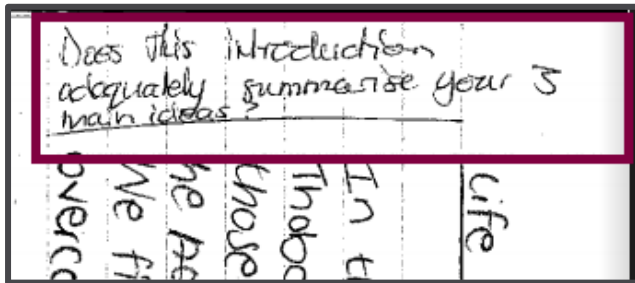 Does this introduction
adequately summarise your 3
main ideas?
Life
In t
those
he pe
We fi
overco